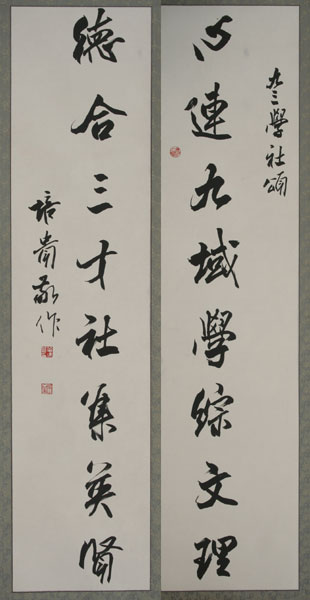 九三學社頌
心連九域學綜文理
德合三才社集英賢
培貴敬作